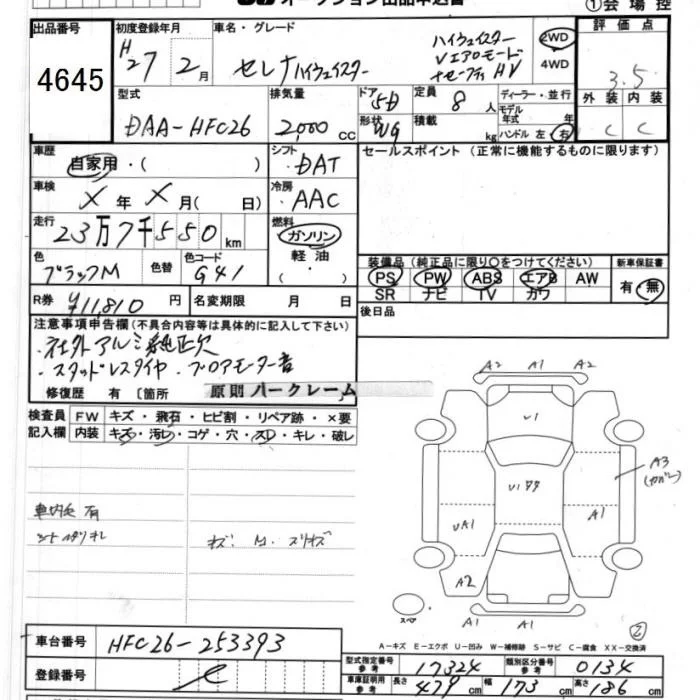 ①会場控
出品番号 初度登録年月 車名・グレード 評価点
4645 H27年 2月 セレナ ハイウェイスター ハイウェイスター Vエアロモード 2WD 4WD 3.5
型式 排気量 ドア 5D 定員 8人 ディーラー・並行 外装 内装
DAA-HFC26 2,000cc 形状 WG 積載 kg モデル年式 年式 ハンドル 左・右 C C
車歴 自家用・( ) シフト DAT セールスポイント(正常に機能するものに限ります)
車検 X年X月( 日) 冷房 AAC
走行 23万7千550km 燃料 ガソリン 軽油・( )
色 ブラックM 色替 色コード G41 装備品(純正品に限り○をつけてください) 新車保証書
PS PW ABS エアB AW 有・無
SR ナビ TV カワ
R券 ¥11,810円 名変期限 月 日 後日品
注意事項申告欄(不具合内容等は具体的に記入して下さい)
・社外アルミ 純正欠
・スタッドレスタイヤ ・ブロアモーター音
修復歴 有 〔箇所 原則ノークレーム
検査員 FW キズ・飛石・ヒビ割・リペア跡・×要
記入欄 内装 キズ・汚レ・コゲ・穴・スレ・キレ・破レ
A2 A1 A2
U1
A3
UA1 A1
A2
A1
スペア
②
A-キズ E-エクボ U-凹み W-補修跡 S-サビ C-腐食 XX-交換済
車台番号 HFC26-253393
登録番号
型式指定番号 参考 17324 類別区分番号 参考 0134
車庫証明用 参考 長さ 479cm 幅 173cm 高さ 186cm